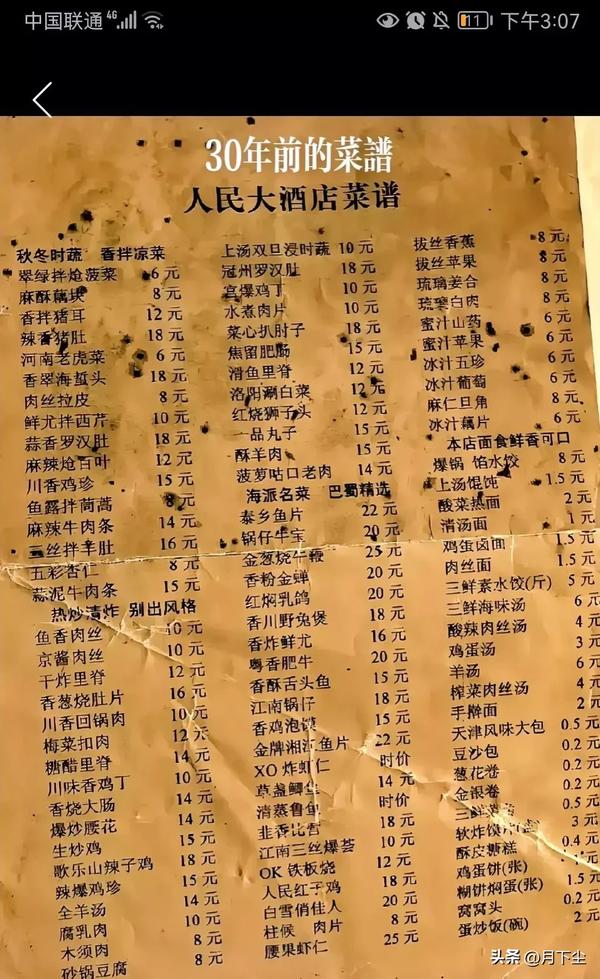 中国联通 4G
11 下午3:07
30年前的菜譜
人民大酒店菜谱
秋冬时蔬 香拌凉菜
翠绿拌炝菠菜 6元
麻酥藕块 8元
香拌猪耳 12元
辣香猪肚 18元
河南老虎菜 6元
香翠海蜇头 18元
肉丝拉皮 8元
鲜尤拌西芹 10元
蒜香罗汉肚 18元
麻辣炝百叶 12元
川香鸡珍 15元
鱼露拌茼蒿 8元
麻辣牛肉条 14元
丝拌羊肚 16元
五彩杏仁 8元
蒜泥牛肉条 15元
热炒清炸 别出风格
鱼香肉丝 10元
京酱肉丝 10元
干炸里脊 12元
香葱烧肚片 16元
川香回锅肉 10元
梅菜扣肉 12元
糖醋里脊 14元
川味香鸡丁 10元
香烧大肠 14元
爆炒腰花 14元
生炒鸡 15元
歌乐山辣子鸡 18元
辣爆鸡珍 15元
全羊汤 14元
腐乳肉 10元
木须肉 8元
砂锅豆腐 8元
上汤双旦浸时蔬 10元
冠州罗汉肚 18元
宫爆鸡丁 10元
水煮肉片 10元
菜心扒肘子 18元
焦留肥肠 15元
滑鱼里脊 12元
洛阳涮白菜 12元
红烧狮子头 12元
一品丸子 15元
酥羊肉 15元
菠萝咕口老肉 14元
海派名菜 巴蜀精选
泰乡鱼片 22元
锅仔牛宝 20元
金葱烧牛鞭 25元
香粉金蝉 20元
红焖乳鸽 20元
香川野兔煲 18元
香炸鲜尤 16元
粤香肥牛 20元
香酥舌头鱼 15元
江南锅仔 18元
香鸡泡馍 15元
金牌湘江鱼片 22元
XO炸虾仁 时价
草盏鲫鱼 14元
清蒸鲁鱼 时价
韭香比管 18元
江南三丝爆荟 10元
OK铁板烧 12元
人民红子鸡 18元
白雪俏佳人 20元
柱候 肉片 8元
腰果虾仁 25元
拔丝香蕉 8元
拔丝苹果 8元
琉璃姜合 8元
琉璃白肉 8元
蜜汁山药 6元
蜜汁苹果 8元
冰汁五珍 6元
冰汁葡萄 6元
麻仁旦角 8元
冰汁藕片 6元
本店面食鲜香可口
爆锅 馅水饺 8元
上汤馄饨 1.5元
酸菜热面 2元
清汤面 1元
鸡蛋卤面 1.5元
肉丝面 1.5元
三鲜素水饺(斤) 5元
三鲜海味汤 6元
酸辣肉丝汤 4元
鸡蛋汤 3元
羊汤 6元
榨菜肉丝汤 4元
手擀面 2元
天津风味大包 0.5元
豆沙包 0.2元
葱花卷 0.2元
金银卷 0.5元
三鲜 3元
软炸馍片 0.4元
酥皮糖糕 1元
鸡蛋饼(张) 1.5元
糊饼焖蛋(张) 0.2元
窝窝头 2元
蛋炒饭(碗)
头条 @月下尘